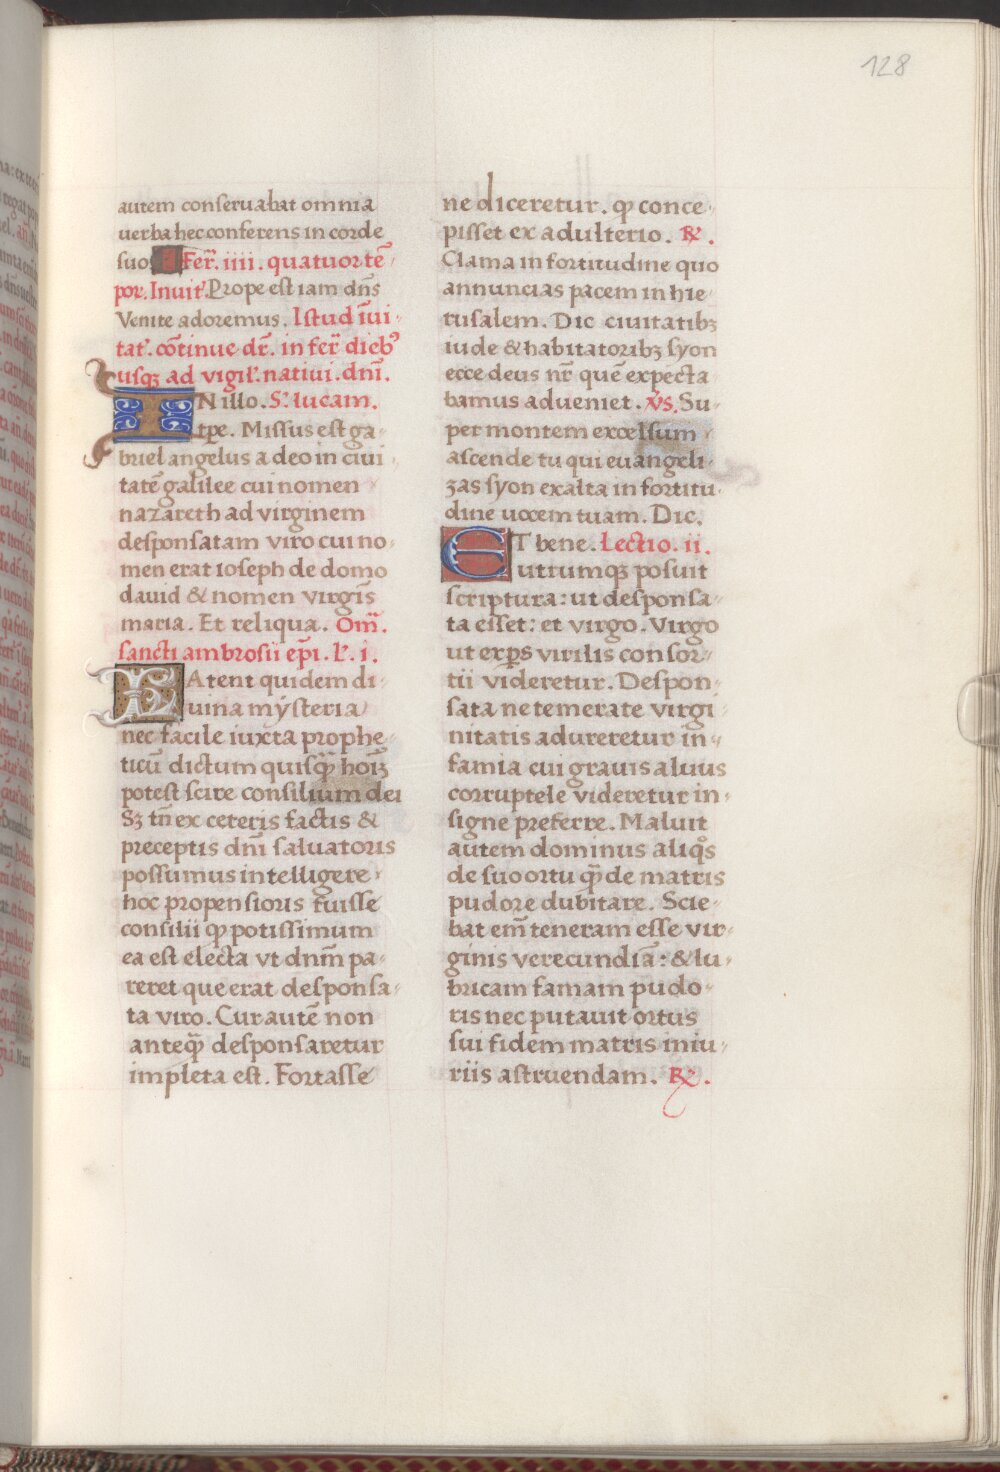 128
autem conseruabat omnia
uerba hec conferens in corde
suo Fer̃. iiii. quatuor tē
por. Inuit'. Prope est iam dn̄s
Venite adoremus. Istud īui
tat'. cōtinue dr̄. in fer̃ dieb9
usqꝫ ad vigil'. natiui. dnī.
IN illo. S. lucam.
tp̄e. Missus est ga
briel angelus a deo in ciui
tatē galilee cui nomen
nazareth ad virginem
desponsatam viro cui no
men erat ioseph de domo
dauid & nomen virgīs
maria. Et reliqua. Om̄.
sancti ambrosii ep̄i. l'. i.
LAtent quidem di
uina mysteria
nec facile iuxta prophe
ticū dictum quisqꝫ̄ hoīꝫ
potest scire consilium dei
Sꝫ tn̄ ex ceteris factis &
preceptis dnī saluatoris
possumus intelligere
hoc propensioris fuisse
consilii qꝫ potissimum
ea est electa vt dnm̄ pa
reret que erat desponsa
ta viro. Cur autē non
anteqꝫ̄ desponsaretur
impleta est. Fortasse
ne diceretur. qꝫ conce
pisset ex adulterio. ℟.
Clama in fortitudine quo
annuncias pacem in hie
rusalem. Dic ciuitatibꝫ
iude & habitatoribꝫ syon
ecce deus nr̄ quē expecta
bamus adueniet. v̄s. Su
per montem excelsum
ascende tu qui euangeli
zas syon exalta in fortitu
dine uocem tuam. Dic.
ET bene. Lectio. ii.
utrumqꝫ posuit
scriptura: ut desponsa
ta esset: et virgo. Virgo
ut exꝑs virilis consor
tii videretur. Despon
sata ne temerate virgi
nitatis adureretur in
famia cui grauis aluus
corruptele videretur in
signe preferre. Maluit
autem dominus aliqͦs
de suo ortu qꝫ̄ de matris
pudore dubitare. Scie
bat em̄ teneram esse vir
ginis verecundiā: & lu
bricam famam pudo
ris nec putauit ortus
sui fidem matris iniu
riis astruendam. ℟.